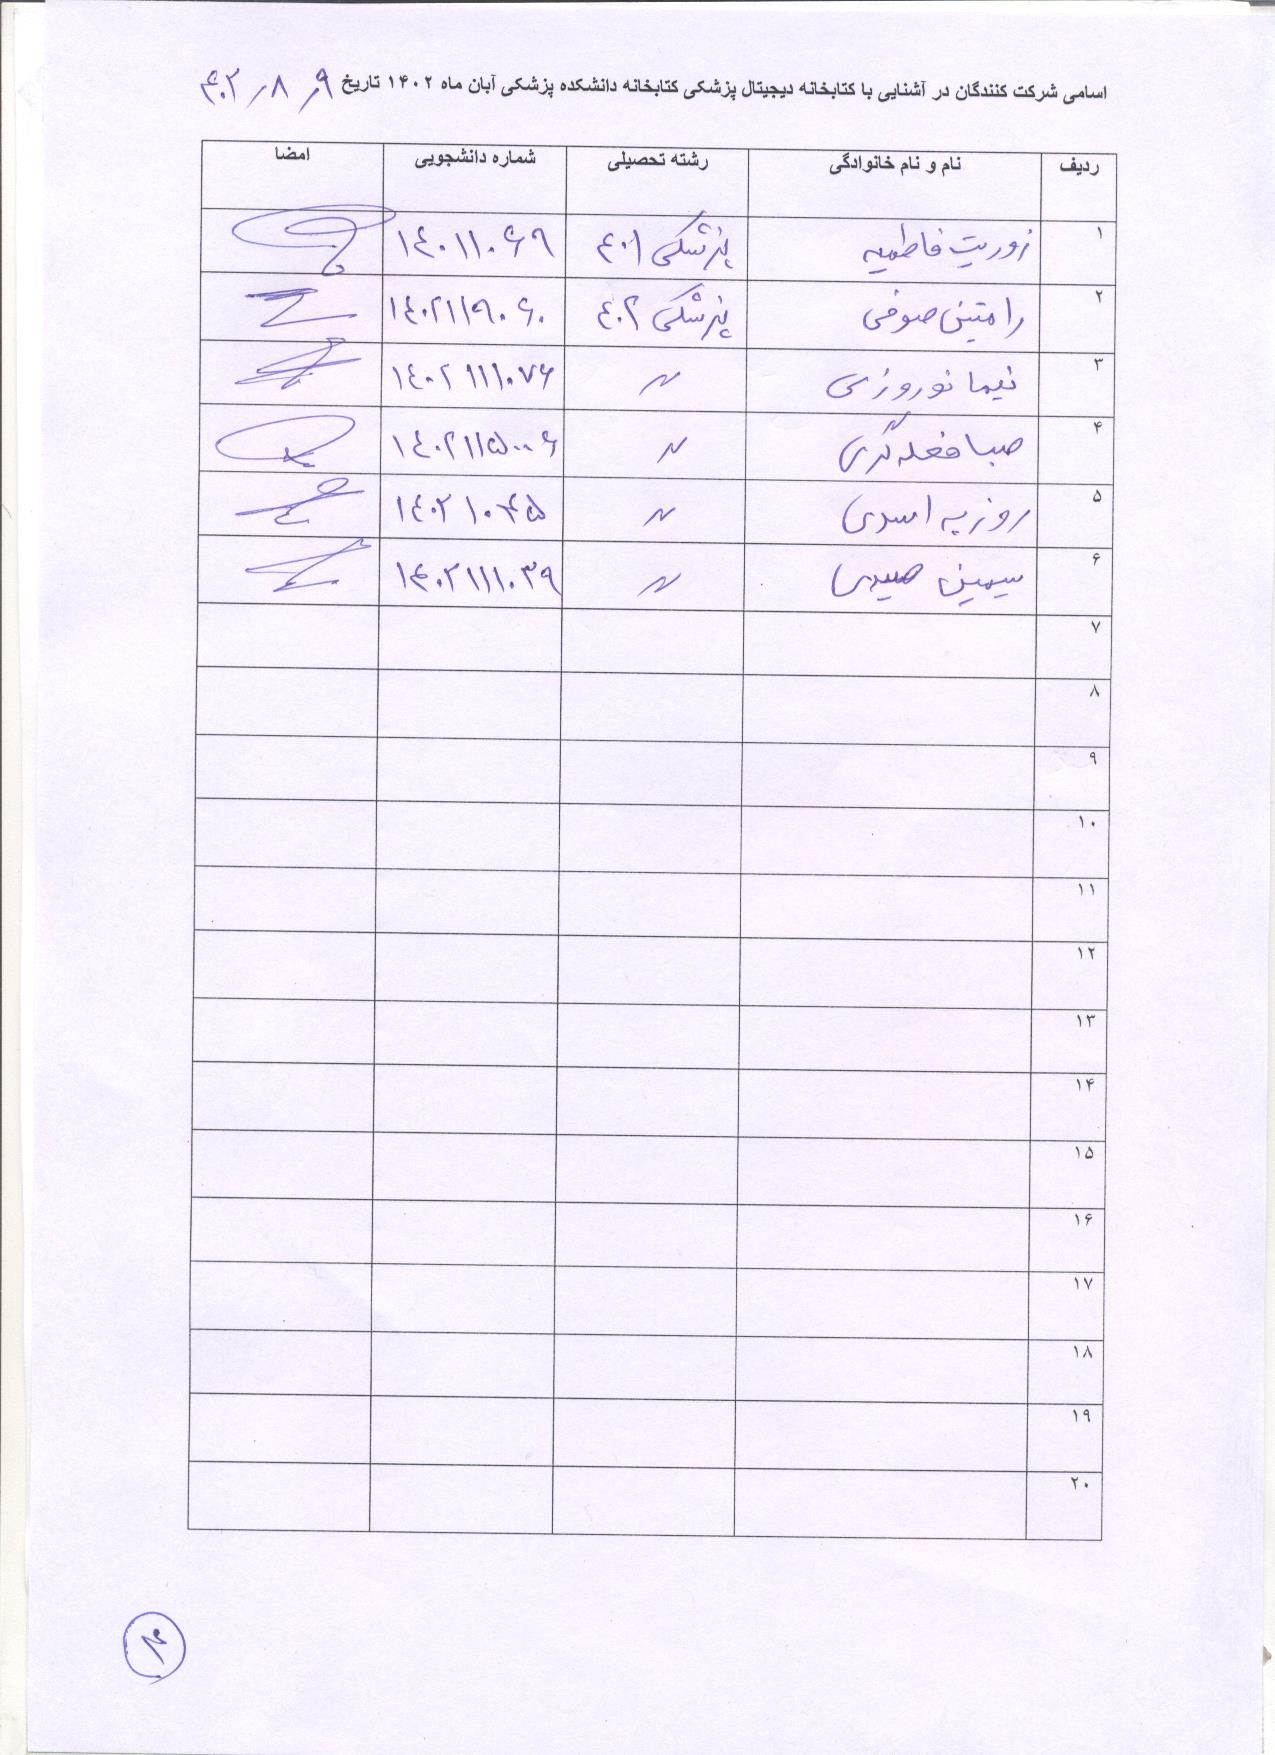 اسامی شرکت کنندگان در آشنایی با کتابخانه دیجیتال پزشکی کتابخانه دانشکده پزشکی آبان ماه ۱۴۰۲ تاریخ ۴۰۲٫۸٫۹
ردیف نام و نام خانوادگی رشته تحصیلی شماره دانشجویی امضا
۱ فاطمیه پزشکی ۴۰۱ ۱۴۰۱۱۰۶۹
۲ رامتین صوفی پزشکی ۴۰۲ ۱۴۰۲۱۱۹۰۶۰
۳ نیما نوروزی 〃 ۱۴۰۲۱۱۱۰۷۶
۴ صبا فعله‌گری 〃 ۱۴۰۲۱۱۵۰۰۶
۵ روزبه اسدی 〃
۶ سیمین صیدی 〃 ۱۴۰۲۱۱۱۰۳۹
۷
۸
۹
۱۰
۱۱
۱۲
۱۳
۱۴
۱۵
۱۶
۱۷
۱۸
۱۹
۲۰